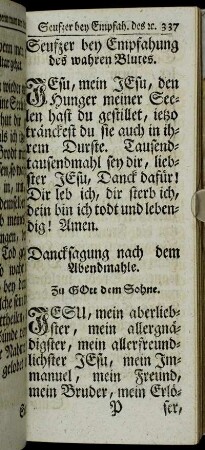 Seufzer bey Empfah. des ꝛc. 337
Seufzer bey Empfahung
des wahren Blutes.
JEsu, mein JEsu, den
Hunger meiner See-
len hast du gestillet, ietzo
tränckest du sie auch in ih-
rem Durste. Tausend-
tausendmahl sey dir, lieb-
ster JEsu, Danck dafür!
Dir leb ich, dir sterb ich,
dein bin ich todt und leben-
dig! Amen.
Dancksagung nach dem
Abendmahle.
Zu GOtt dem Sohne.
JESU, mein aberlieb-
ster, mein allergnä-
digster, mein allerfreund-
lichster JEsu, mein Im-
manuel, mein Freund,
mein Bruder, mein Erlö-
P ser,